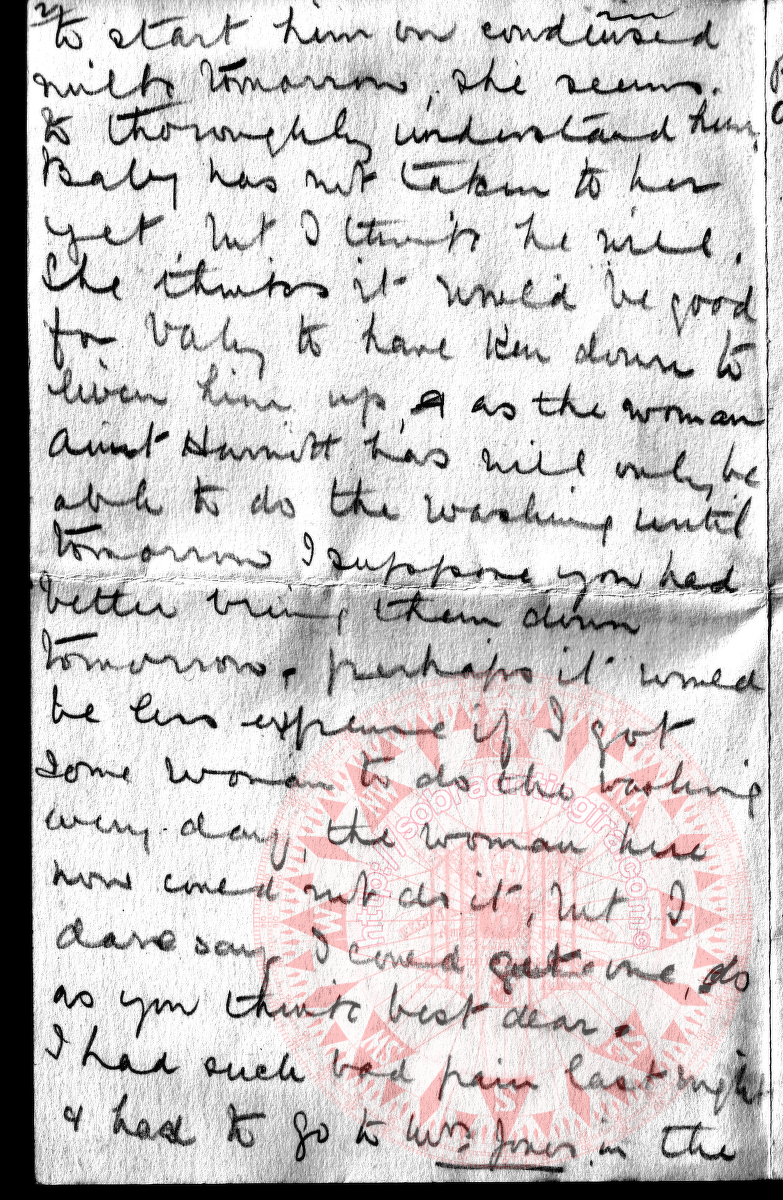 to start him on condensed
milk tomorrow, she seems
to thoroughly understand him,
Baby has not taken to her
yet, but I think he will.
She thinks it would be good
for baby to have Ken down to
liven him up, & as the woman
Aunt has will only be
able to do the washing until
tomorrow I suppose you had
better bring them down
tomorrow. perhaps it would
be less expense if I got
some woman to do the washing
every day, the woman here
now could not do it, but I
dare say I could get one, do
as you think best dear.
I had such bad pain last night
& had to go to Mrs Jones in the
http://sobreacontingira.com